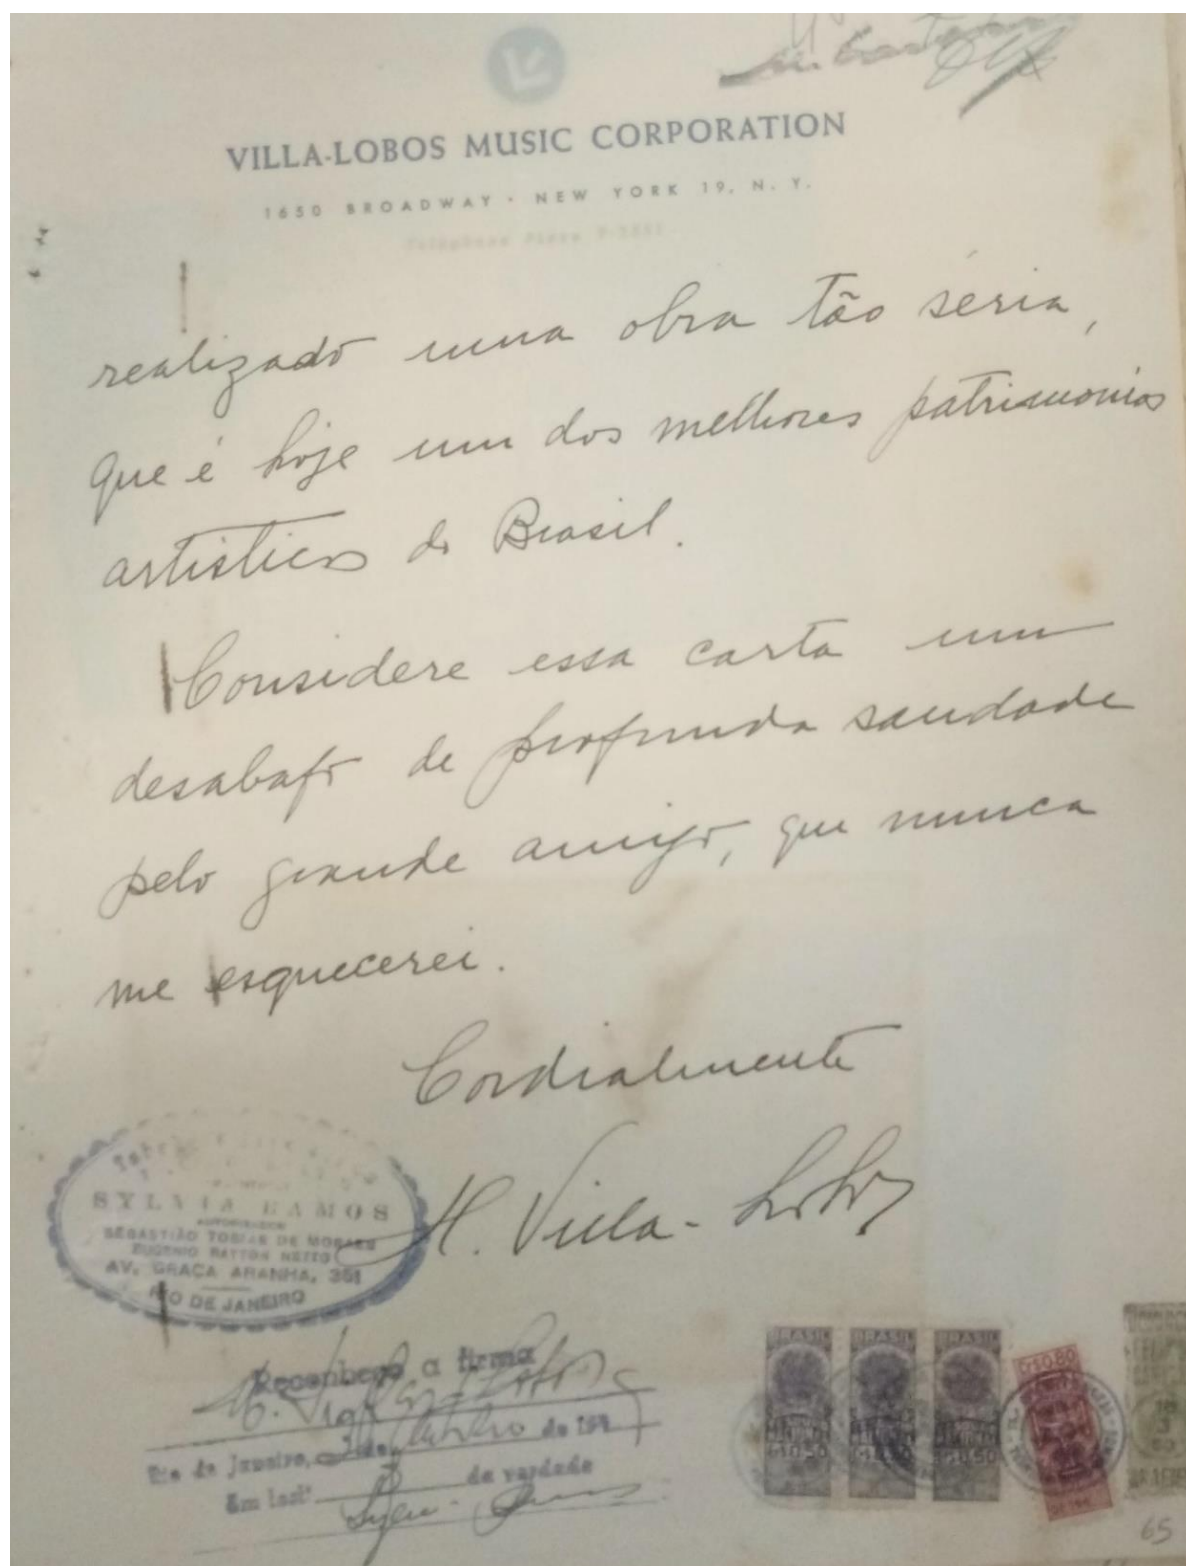 VILLA-LOBOS MUSIC CORPORATION
1650 BROADWAY · NEW YORK 19, N. Y.
Telephone Plaza
realizado uma obra tão séria,
que é hoje um dos melhores patrimonios
artisticos do Brasil.
Considere essa carta um
desabafo de profunda saudade
pelo grande amigo, que nunca
me esquecerei.
Cordialmente
H. Villa-Lobos
SYLVIA RAMOS
SEBASTIÃO TOBIAS DE MORAES
EUGENIO RATTON NETTO
AV. GRAÇA ARANHA, 351
RIO DE JANEIRO
Reconheço a firma
H. Villa-Lobos
Rio de Janeiro, de de 194
Em test.º da verdade
BRASIL BRASIL BRASIL
0.50 0.50 0.50
Cr$0,80
65